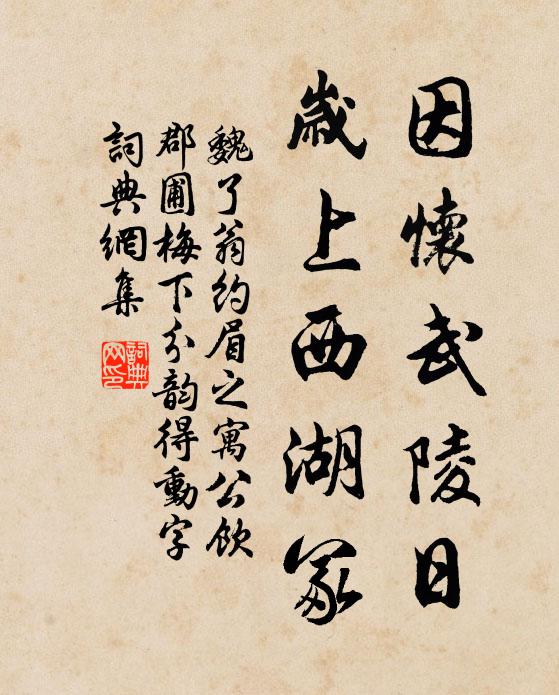 因懷武陵日
歲上西湖冢
魏了翁約眉之寓公飲
郡圃梅下分韵得動字
詞典網集
詞典
网印